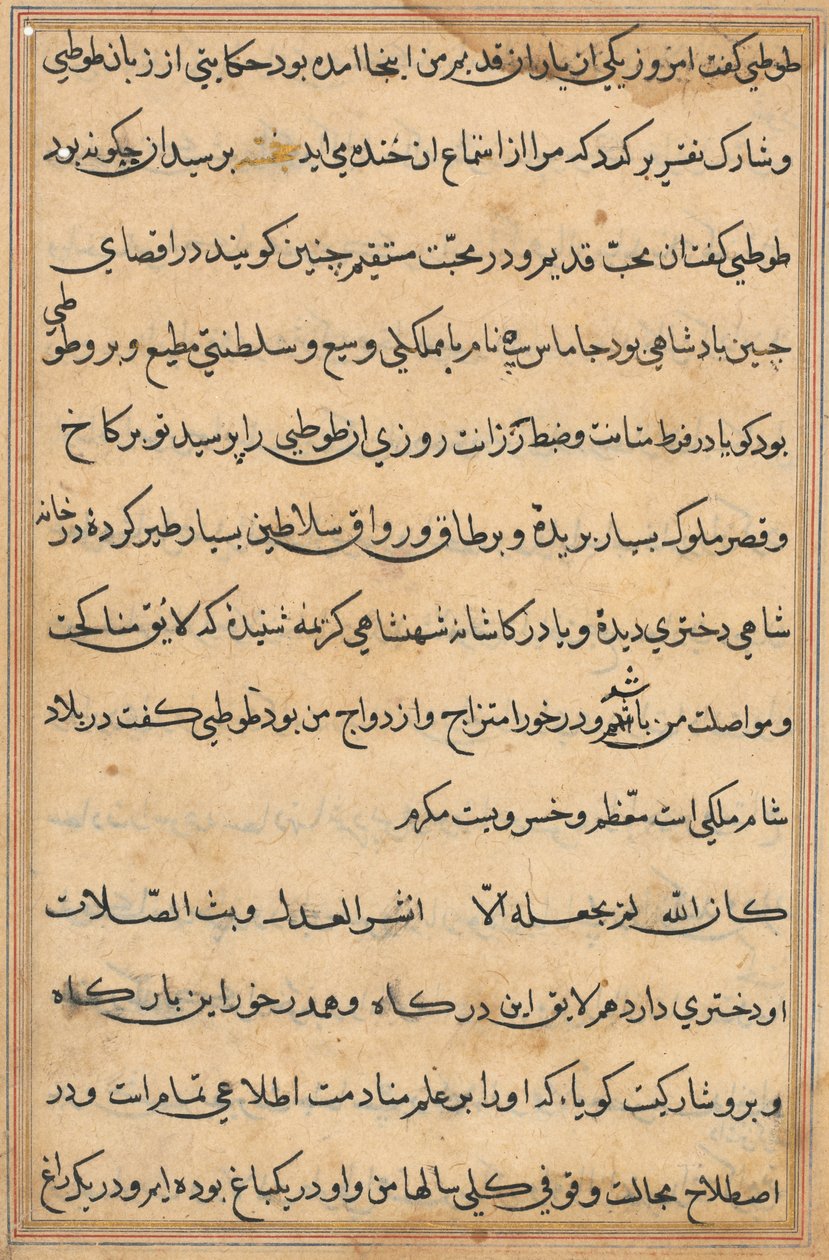 طوطیی کفت امروز یکی از یاران قدیم من اینجا امده بود حکایتی از زبان طوطیی
و شارک تقریر کرد که مرا از استماع ان خنده می اید خجسته برسید ان چکونه بود
طوطیی کفت ان محبّ قدیم و در محبّت مستقیم چنین کویند در اقصای
چین بادشاهی بود جاماس شاه نام با مملکتی وسیع و سلطنتی مطیع و بر و طوطی
بود کویا در فرط متانت و ضبط رزانت روزی ان طوطیی را پرسید تو بر کاخ
و قصر ملوک بسیار بریدهٔ و بر طاق و رواق سلاطین بسیار طیر کردهٔ در خانه
شاهی دختری دیدهٔ و یا در کاشانه شهنشاهی کریمه شنیدهٔ که لایق مناکحت
و مواصلت من باشد و در خور امتزاج و ازدواج من بود طوطیی کفت در بلاد
شام ملکی است معّظم و خسرویست مکرم
کان الله لم یجعله الّا انشر العدل و بث الصّلات
او دختری دارد هم لایق این درکاه و هم در خور این بارکاه
و بر و شارکیت کویاء که او را بر علم منادمت اطلاعی تمام است و در
اصطلاح مجالت وقوفی کلی سالها من و او در یکباغ بوده ایم و در یک راغ